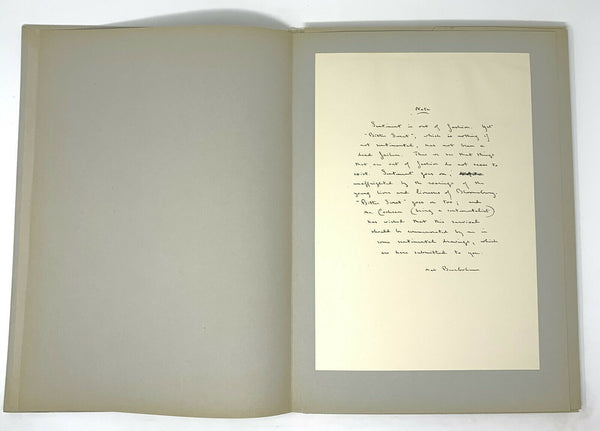 Note
Sentiment is out of fashion. Yet
"Bitter Sweet", which is nothing if
not sentimental, has not been a
dead failure. Thus we see that things
that are out of fashion do not cease to
exist. Sentiment goes on,
unaffrighted by the roarings of the
young lions and lionesses of Bloomsbury.
"Bitter Sweet" goes on too; and
Mr Cochran (being a sentimentalist)
has wished that this survival
should be commemorated by me in
some sentimental drawings, which
are here submitted to you.
Max Beerbohm